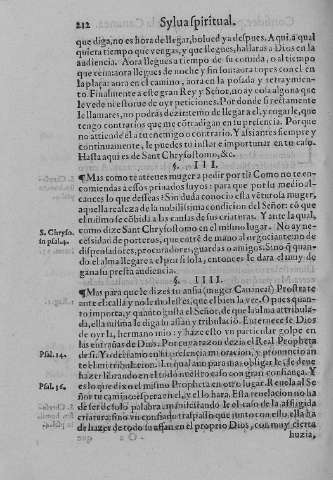 212 Sylua spiritual.
que diga, no es hora de llegar, bolued y a despues. Aqui a qual
quiera tiempo que vengas, y que llegues, hallaras a Dios en la
audiencia. Aora llegues a tiempo de su comida, o al tiempo
que cena: aora llegues de noche y sin lon: aora topes con el en
la plaça: aora en el camino, aora en la posada y retraymien-
to. Finalmente a este gran Rey y Señor, no ay cosa alguna que
le vede ni estorue de oyr peticiones. Por donde si rectamente
le llamares, no podras dezir temo de llegar a el, y rogarle, que
tengo contrarios que me contradigan en tu presencia. Porque
no attiende el a tu enemigo o contrario. Y assi antes siempre y
continuamente, le puedes tu instar e importunar en tu caso.
Hasta aqui es de Sant Chrysostomo, &c.
§. III.
¶ Mas como te atreues muger a pedir por ti? Como no te en-
comiendas a essos priuados suyos: para que por su medio al-
cances lo que desseas? Sin duda conocio esta venturosa muger
aquella realeza de la nobilissima condicion del Señor: co que
el mismo se cobida a las causas de sus criaturas. Y ante la qual,
S. Chryso. como dize Sant Chrysostomo en el mismo lugar. No ay ne-
in psal. 4. cessidad de porteros, que entre de mano al negociante: no de
dispensadores, procuradores, guardas o amigos. Sino que quan-
do el alma llegare a el por si sola, entonces le dara el muy de
gana su presta audiencia.
§. IIII.
¶ Mas para que le dizes tu ansia (muger Cananea) Prostrate
ante el: calla y no le molestes, que el bien la vee. O pues quan-
to importa, y quanto gusta el Señor, de que la alma atribula-
da, ella misma le diga tu afan y tribulacion. Enternecese Dios
de oyrla, hermano mio, y haze ello vn particular golpe en
las entrañas de Dios. Por cuya razon dezia el Real Propheta
Psal. 14. de si. Yo derramo en su presencia mi oracion, y pronuncio an
te el mi tribulacion. Lo qual aun para mas obligarle, se deue
hazer librando en el todo nuestro caso con gran confiança. Y
Psal. 36. es lo que dixo el mismo Propheta en otro lugar. Reuela al Se
ñor tu camino: espera en el, y el lo hara. Esta reuelacion no ha
de ser de solo palabra, manifestando le el caso de la affligida
criatura: sino vn confiado traspasso que junto con esto, ella ha
de hazer de todo su afan en el proprio Dios, con muy cierta
huzia,